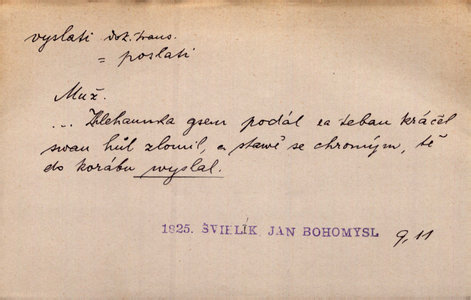 vyslati dok. trans.
= poslati
Muž.
... Klehaunka gsem podál za žebau kráčel
swau hůl zlomil, a stawě se chromým, tě
do korábu wyslal.
1825. ŠVIELÍK JAN BOHOMYSL 9, 11